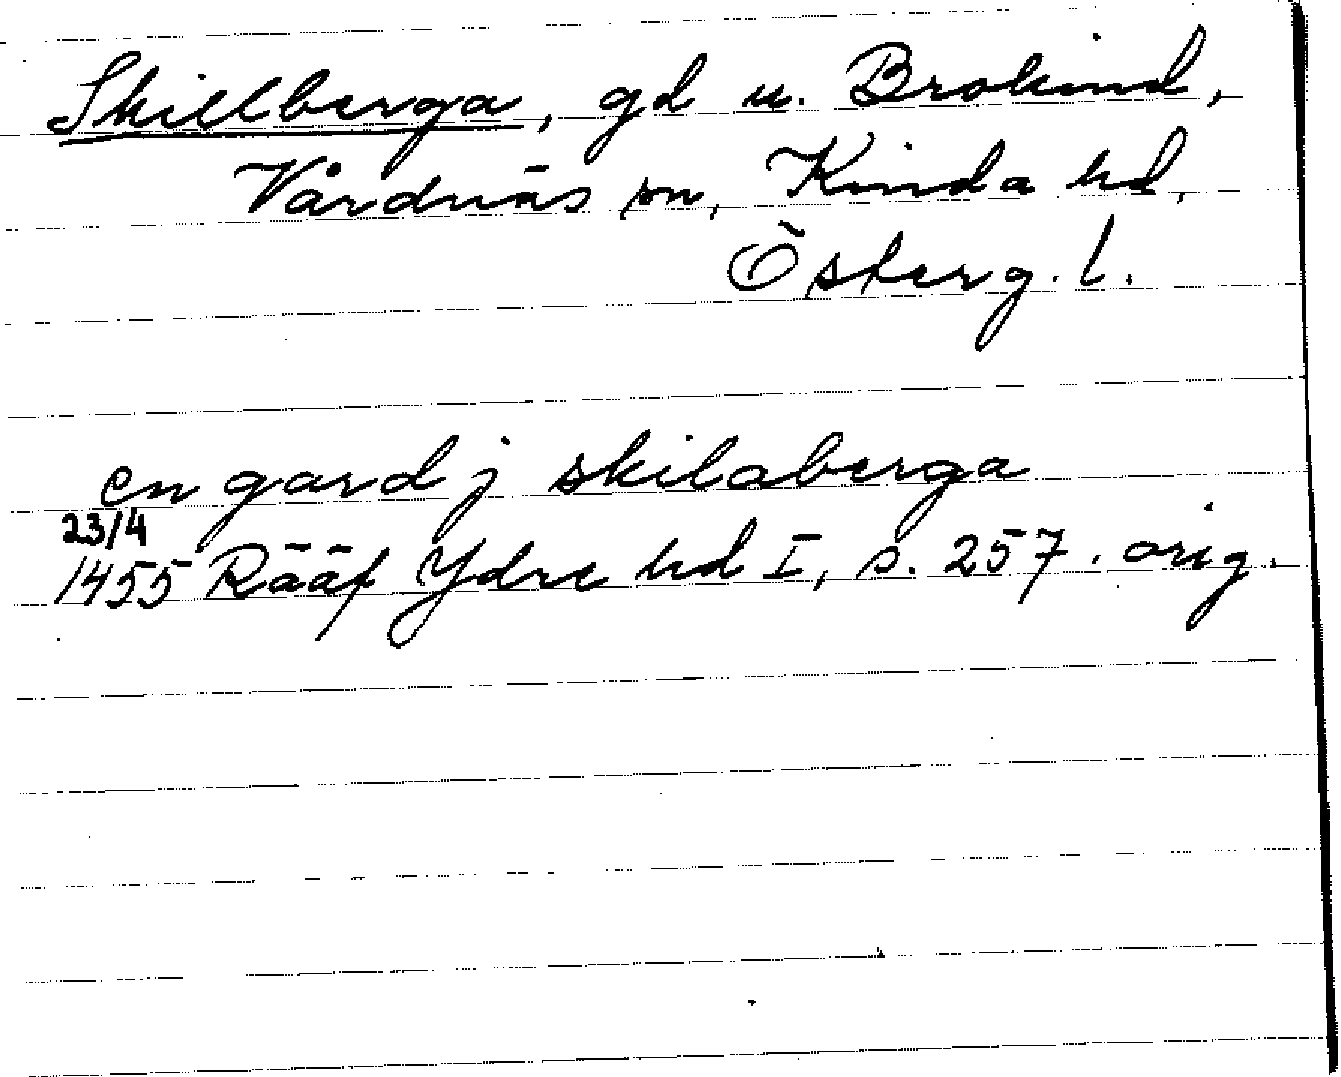 Skillberga, gd u. Brokind,
Vårdnäs sn, Kinda hd,
Österg. l.
en gard j skilaberga
23/4
1455 Rääf Ydre hd I, s. 257. orig.